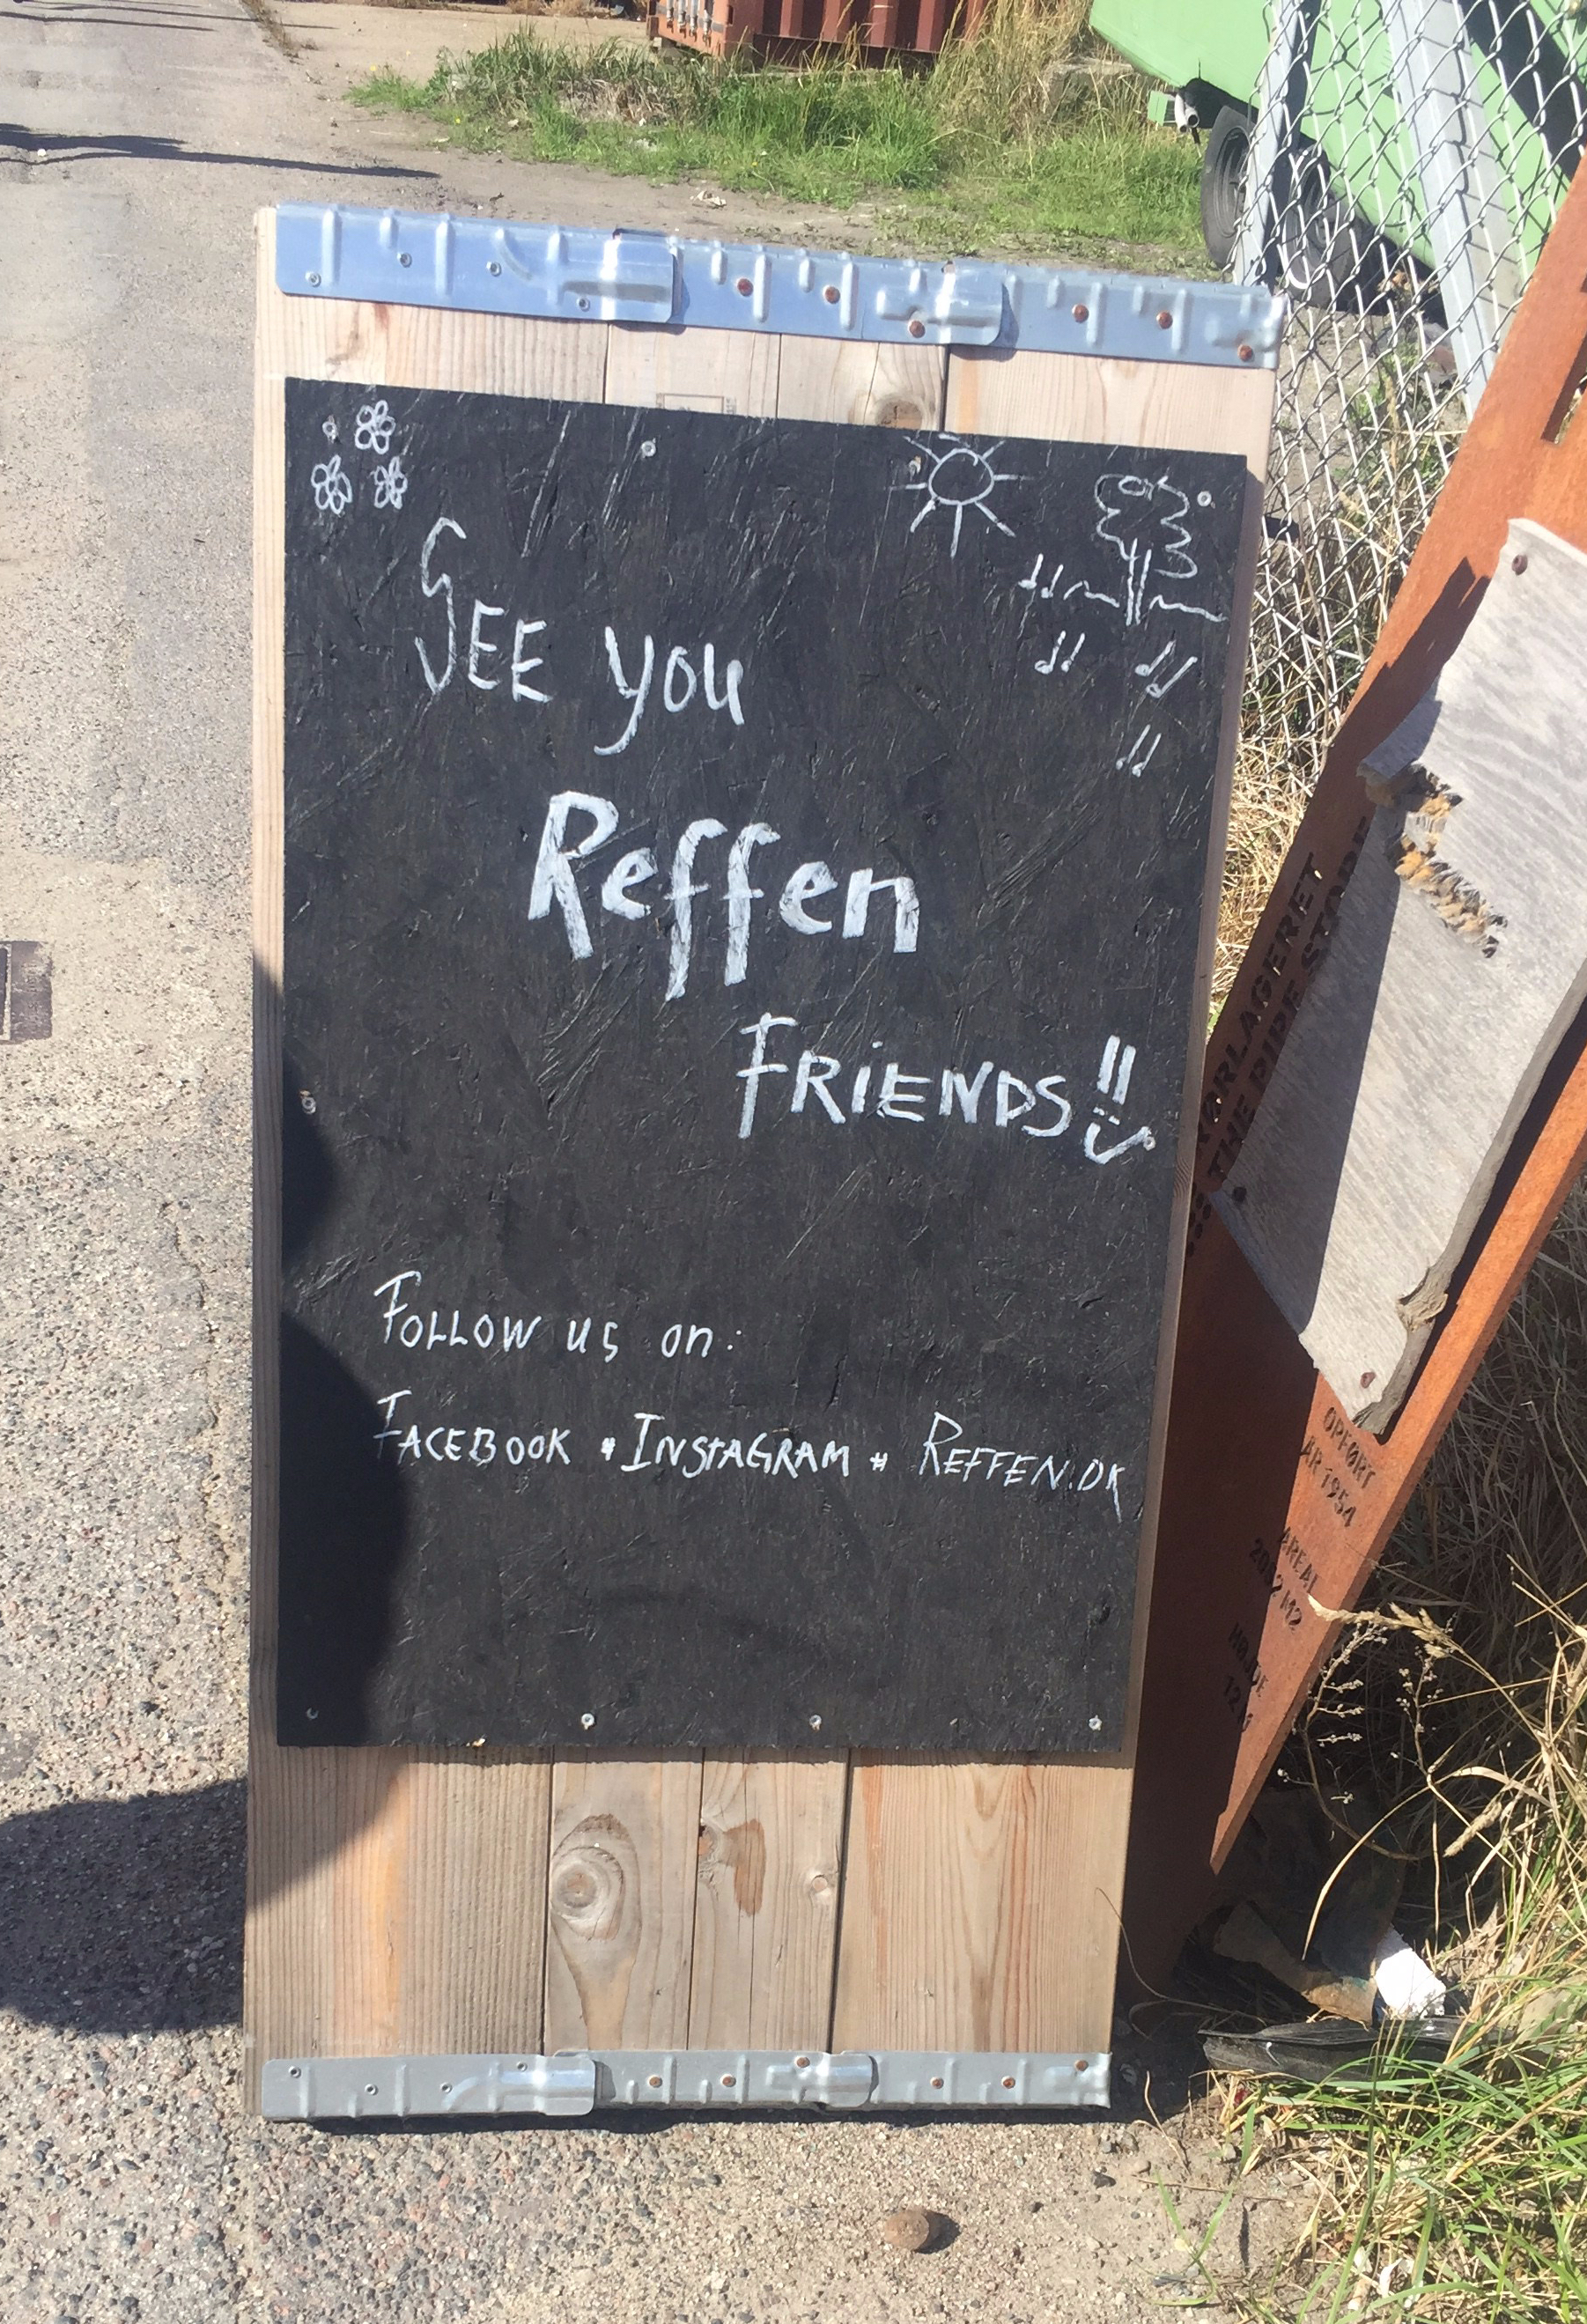 SEE you
Reffen
FRiENDS!!
FOLLOW us on:
FACEBOOK * INSTAGRAM * REFFEN.DK
RØRLAGERET
THE PIPE STORE
OPFØRT
ÅR 1954
AREAL
2002 M2
HØJDE